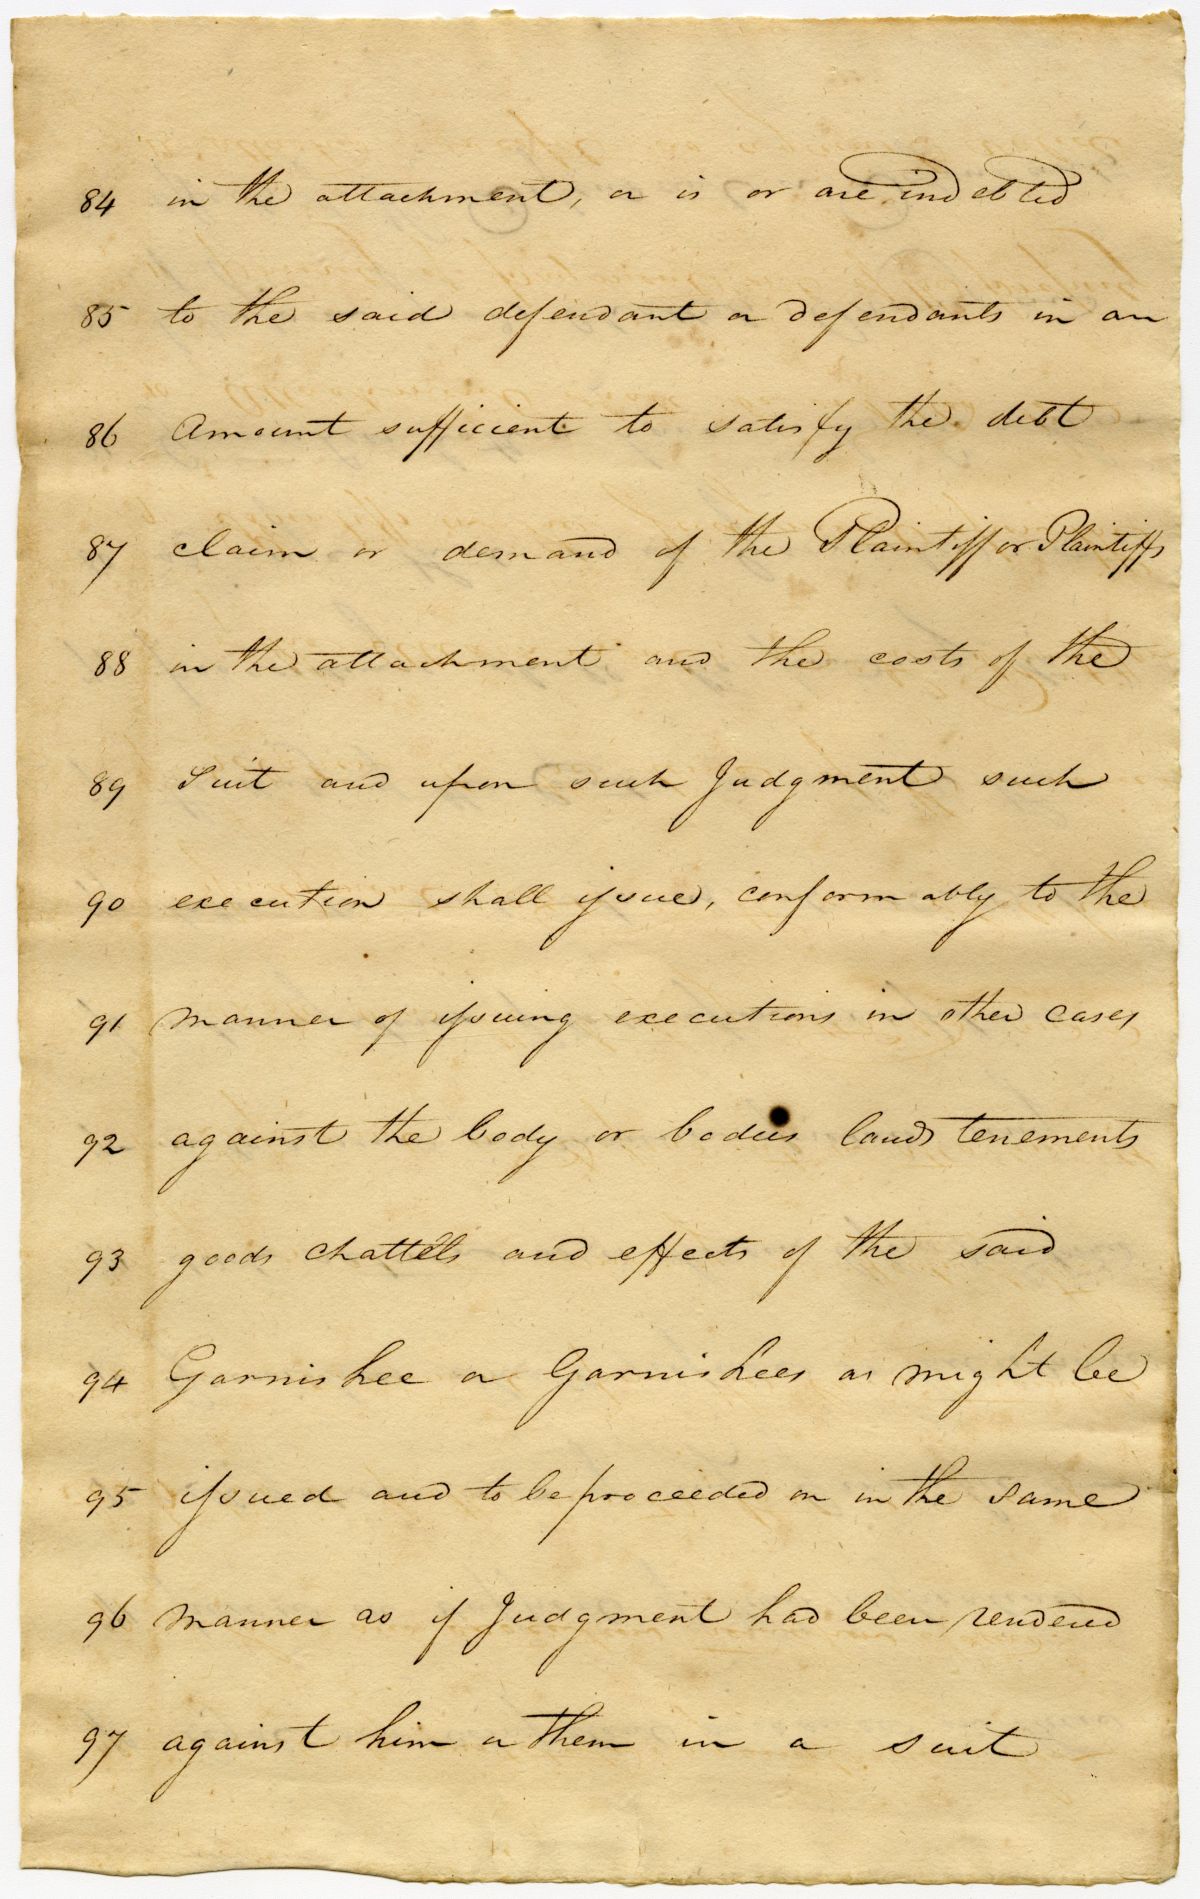 84 in the attachment, or is or are indebted
85 to the said defendant or defendants in an
86 Amount sufficient to satisfy the debt
87 claim or demand of the Plaintiff or Plaintiffs
88 in the attachment and the costs of the
89 Suit and upon such Judgment such
90 execution shall issue, conformably to the
91 manner of issuing executions in other cases
92 against the body or bodies lands tenements
93 goods chattels and effects of the said
94 Garnishee or Garnishees as might be
95 issued and to be proceeded on in the same
96 manner as if Judgment had been rendered
97 against him or them in a suit